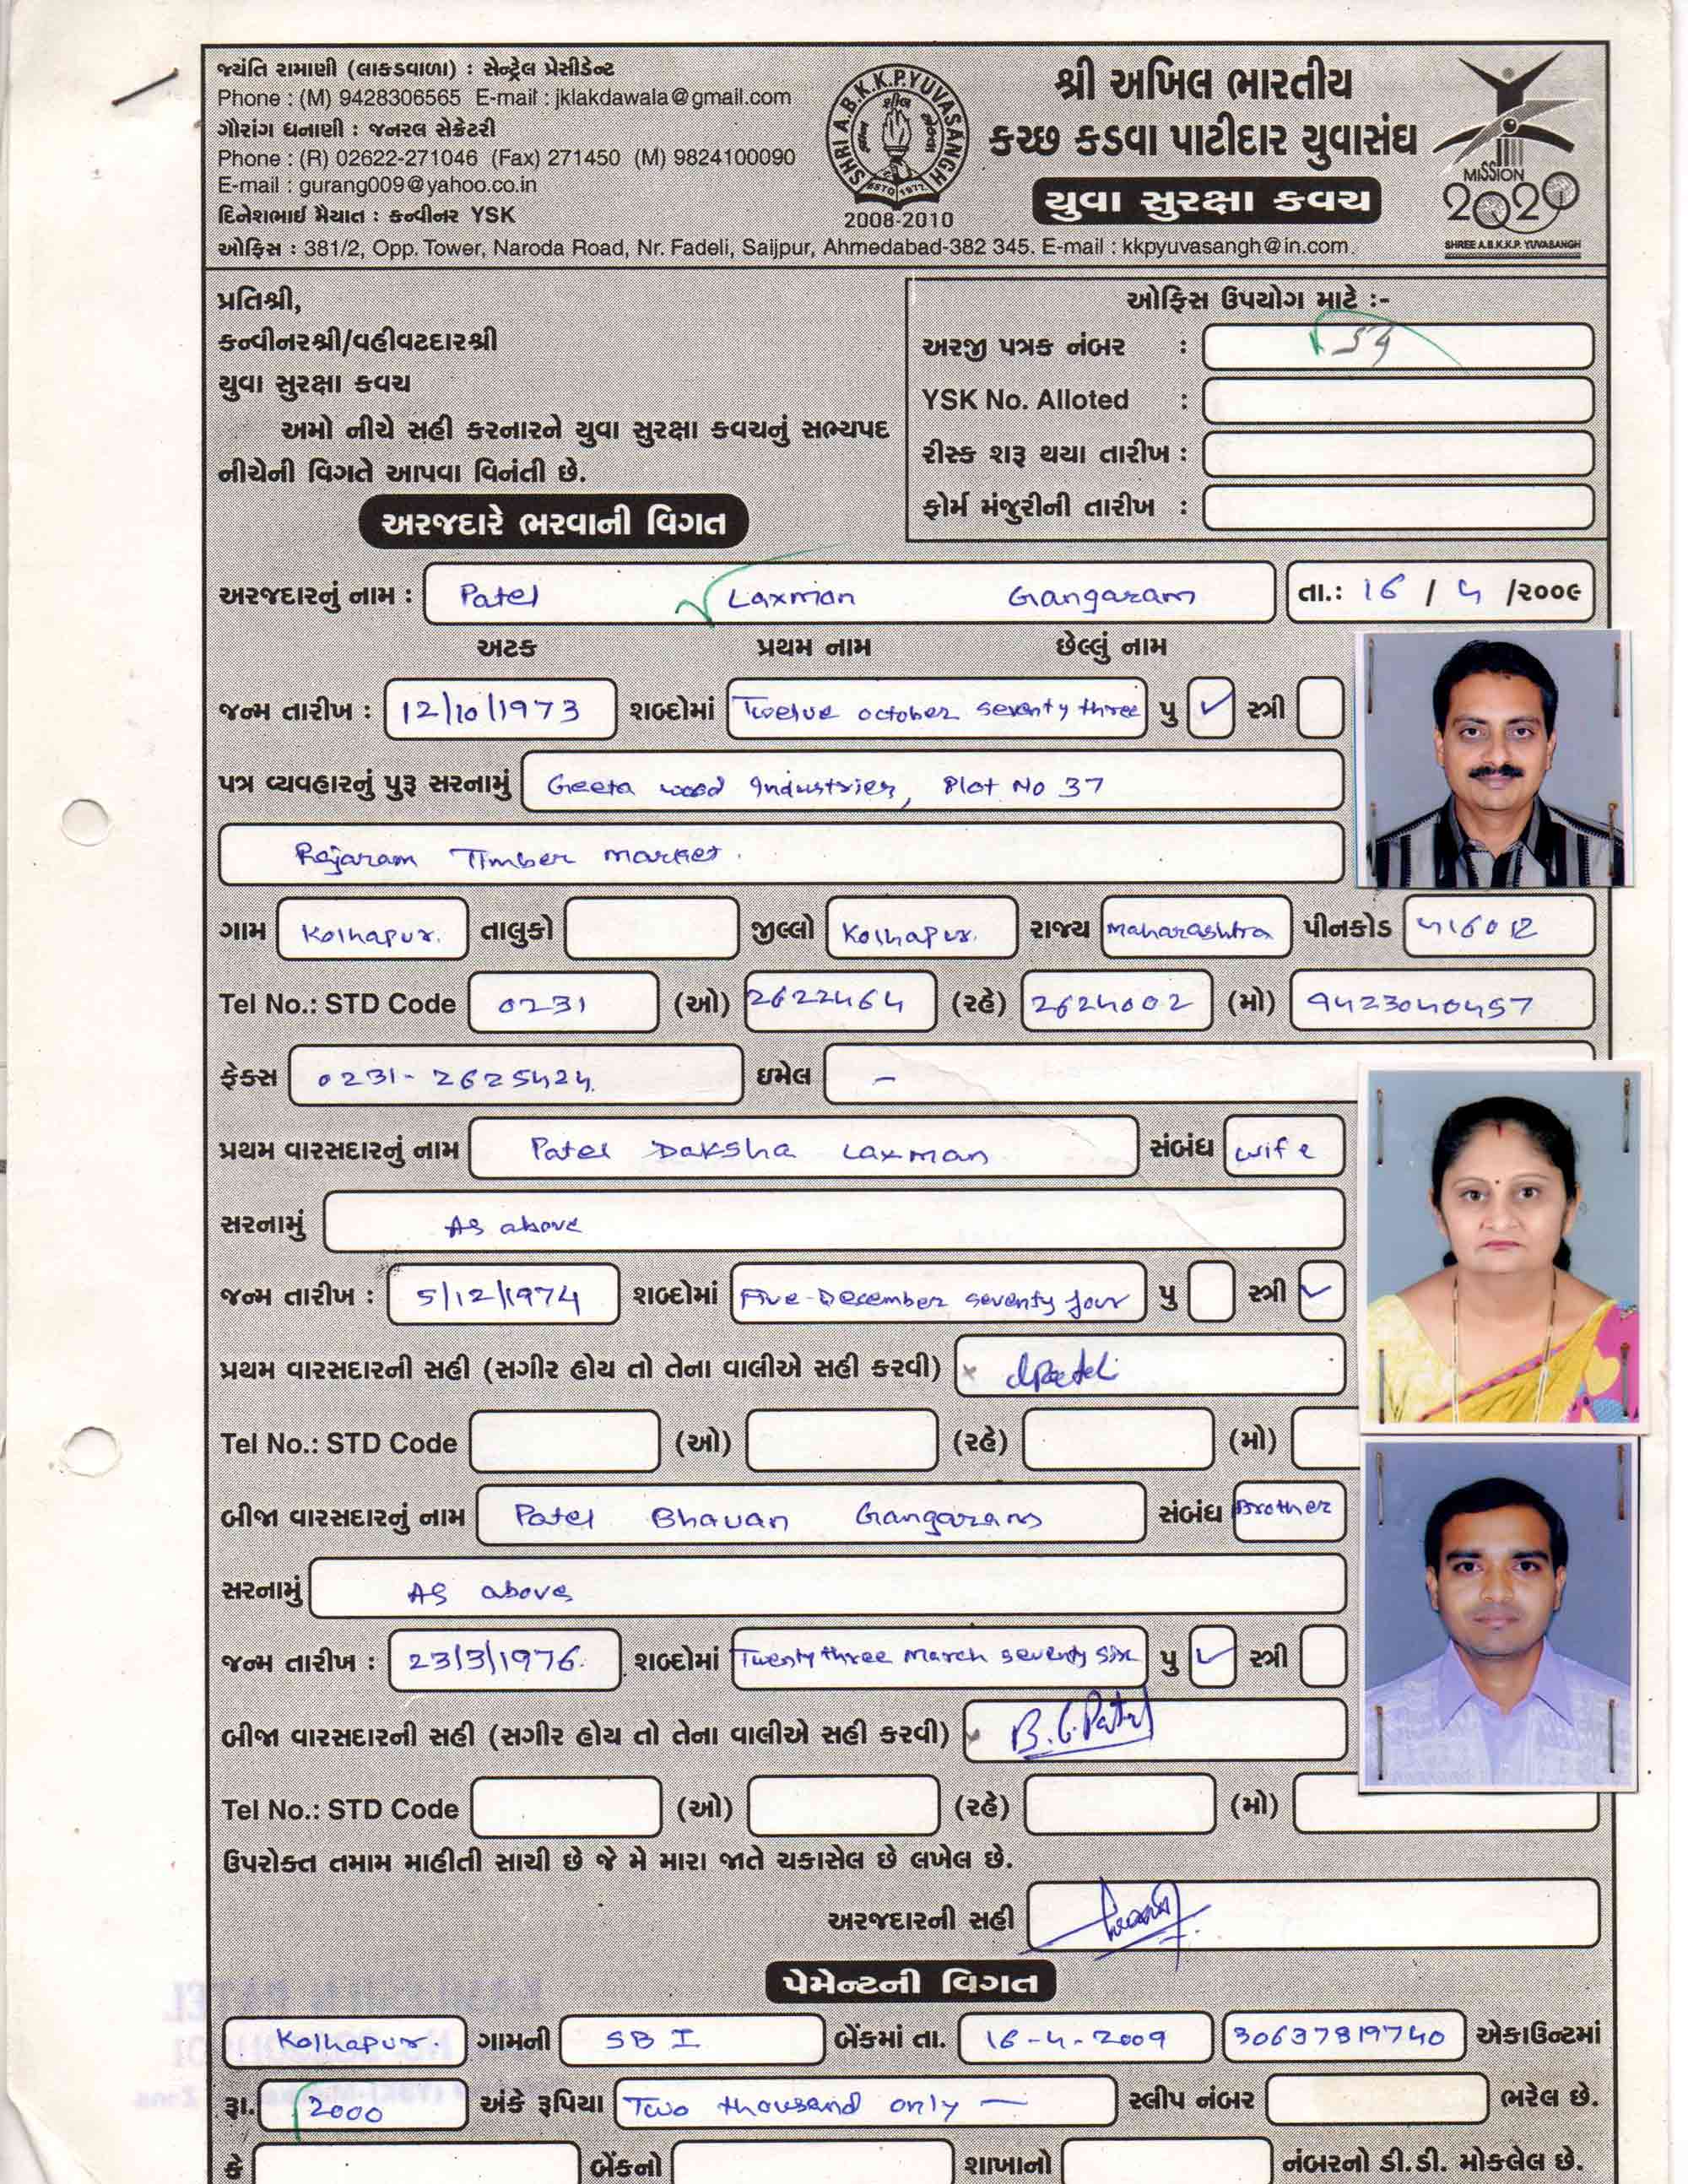 જયંતિ રામાણી (લાકડાવાળા) : સેન્ટ્રેલ પ્રેસીડેન્ટ
Phone : (M) 9428306565 E-mail : jklakdawala@gmail.com
ગૌરાંગ ધનાણી : જનરલ સેક્રેટરી
Phone : (R) 02622-271046 (Fax) 271450 (M) 9824100090
E-mail : gurang009@yahoo.co.in
દિનેશભાઈ મૈયાત : કન્વીનર YSK
SHRI A.B.K.K.P. YUVASANGH
ESTD 1972
2008-2010
શ્રી અખિલ ભારતીય
કચ્છ કડવા પાટીદાર યુવાસંઘ
યુવા સુરક્ષા કવચ
MISSION
2020
SHREE A.B.K.K.P. YUVASANGH
ઓફિસ : 381/2, Opp. Tower, Naroda Road, Nr. Fadeli, Saijpur, Ahmedabad-382 345. E-mail : kkpyuvasangh@in.com.
પ્રતિશ્રી,
કન્વીનરશ્રી/વહીવટદારશ્રી
યુવા સુરક્ષા કવચ
અમો નીચે સહી કરનારને યુવા સુરક્ષા કવચનું સભ્યપદ
નીચેની વિગતે આપવા વિનંતી છે.
ઓફિસ ઉપયોગ માટે :-
અરજી પત્રક નંબર :
YSK No. Alloted :
રીસ્ક શરૂ થયા તારીખ :
ફોર્મ મંજુરીની તારીખ :
અરજદારે ભરવાની વિગત
અરજદારનું નામ : Patel Laxman Gangaram તા.: 16 / 4 /૨૦૦૯
અટક પ્રથમ નામ છેલ્લું નામ
જન્મ તારીખ : 12/10/1973 શબ્દોમાં Twelve october seventy three પુ ✓ સ્ત્રી
પત્ર વ્યવહારનું પુરૂ સરનામું Geeta wood Industries, Plot No 37
Rajaram Timber market.
ગામ Kolhapur. તાલુકો જીલ્લો Kolhapur. રાજ્ય Maharashtra પીનકોડ 416012
Tel No.: STD Code 0231 (ઓ) 2622464 (રહે) 2624002 (મો) 9423040457
ફેક્સ 0231-2625424. ઇમેલ –
પ્રથમ વારસદારનું નામ Patel Daksha Laxman સંબંધ wife
સરનામું As above
જન્મ તારીખ : 5/12/1974 શબ્દોમાં Five-December seventy four પુ સ્ત્રી ✓
પ્રથમ વારસદારની સહી (સગીર હોય તો તેના વાલીએ સહી કરવી) × dpatel
Tel No.: STD Code (ઓ) (રહે) (મો)
બીજા વારસદારનું નામ Patel Bhavan Gangaram સંબંધ Brother
સરનામું As above
જન્મ તારીખ : 23/3/1976. શબ્દોમાં Twenty three March seventy six પુ ✓ સ્ત્રી
બીજા વારસદારની સહી (સગીર હોય તો તેના વાલીએ સહી કરવી) B.G.Patel
Tel No.: STD Code (ઓ) (રહે) (મો)
ઉપરોક્ત તમામ માહીતી સાચી છે જે મે મારા જાતે ચકાસેલ છે લખેલ છે.
અરજદારની સહી
પેમેન્ટની વિગત
Kolhapur. ગામની SBI બેંકમાં તા. 16-4-2009 30637819740 એકાઉન્ટમાં
રૂા. 2000 અંકે રૂપિયા Two thousand only — સ્લીપ નંબર ભરેલ છે.
કે બેંકનો શાખાનો નંબરનો ડી.ડી. મોકલેલ છે.